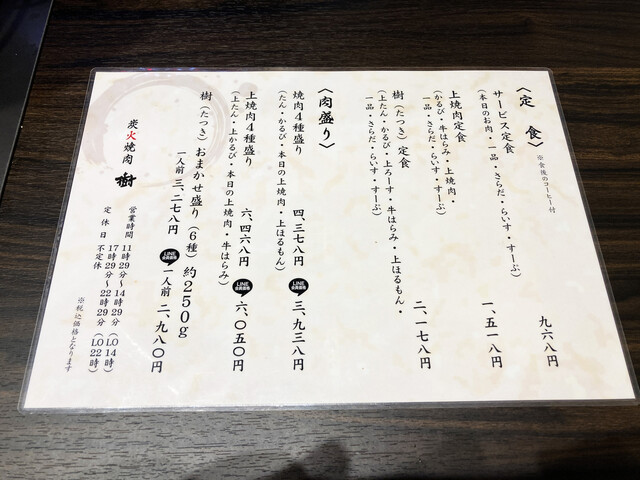 〈定 食〉 ※食後のコーヒー付
サービス定食 九六八円
(本日のお肉・一品・さらだ・らいす・すーぷ)
上焼肉定食 一、五一八円
(かるび・牛はらみ・上焼肉・
一品・さらだ・らいす・すーぷ)
樹(たつき)定食 二、一七八円
(上たん・かるび・上ろーす・牛はらみ・上ほるもん・
一品・さらだ・らいす・すーぷ)
〈肉盛り〉
焼肉4種盛り 四、三七八円 LINE会員価格 三、九三八円
(たん・かるび・本日の上焼肉・上ほるもん)
上焼肉4種盛り 六、四六八円 LINE会員価格 六、〇五〇円
(上たん・上かるび・本日の上焼肉・牛はらみ)
樹(たつき)おまかせ盛り(6種)約250g
一人前 三、二七八円 LINE会員価格 一人前 二、九八〇円
炭火焼肉 樹
営業時間 11時29分〜14時29分(LO14時)
17時29分〜22時29分(LO22時)
定休日 不定休
※税込価格となります